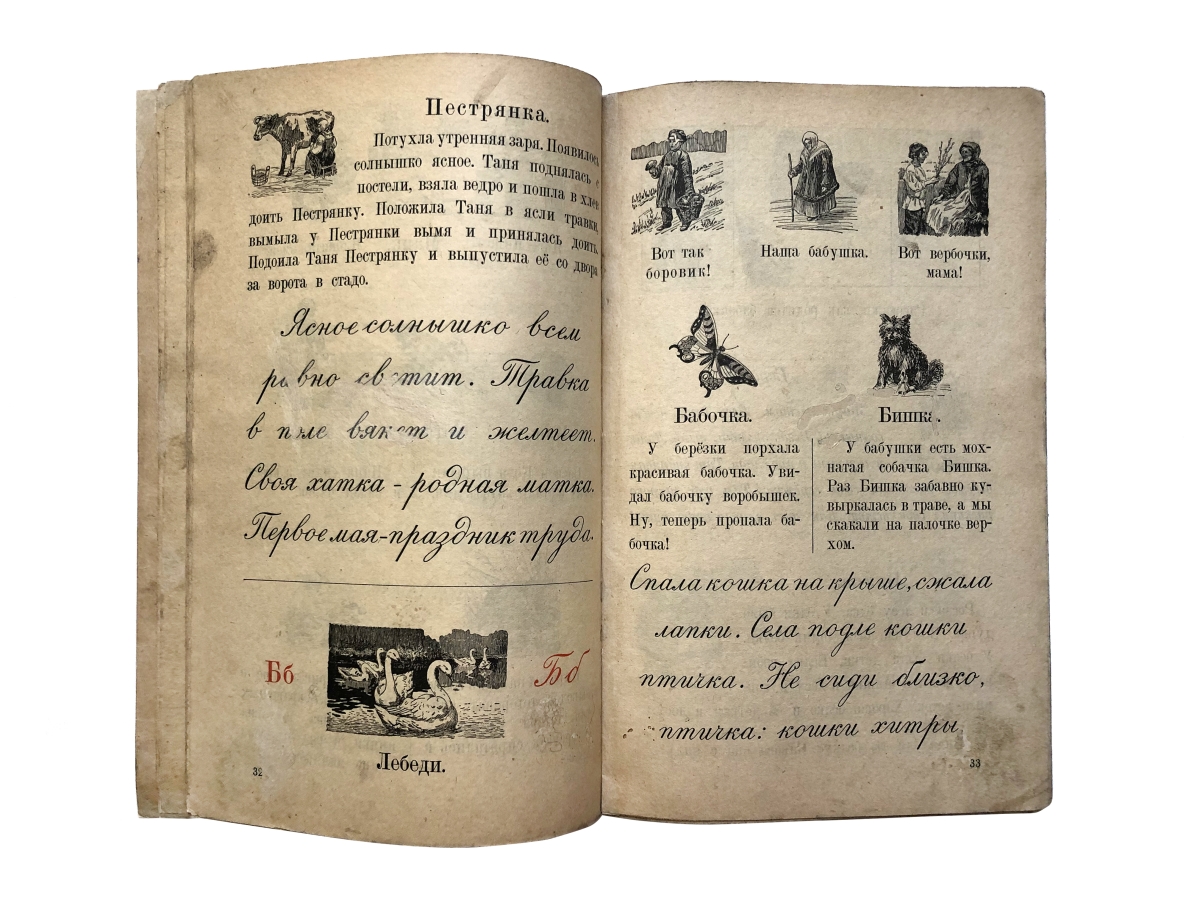 Пестрянка.
Потухла утренняя заря. Появилось
солнышко ясное. Таня поднялась с
постели, взяла ведро и пошла в хлев
доить Пестрянку. Положила Таня в ясли травки,
вымыла у Пестрянки вымя и принялась доить.
Подоила Таня Пестрянку и выпустила её со двора
за ворота в стадо.
Ясное солнышко всем
равно светит. Травка
в поле вянет и желтеет.
Своя хатка - родная матка.
Первое мая - праздник труда.
Бб
Бб
Лебеди.
32
Вот так
боровик!
Наша бабушка.
Вот вербочки,
мама!
Бабочка.
У берёзки порхала
красивая бабочка. Уви-
дал бабочку воробышек.
Ну, теперь пропала ба-
бочка!
Бишка.
У бабушки есть мох-
натая собачка Бишка.
Раз Бишка забавно ку-
выркалась в траве, а мы
скакали на палочке вер-
хом.
Спала кошка на крыше, сжала
лапки. Села подле кошки
птичка. Не сиди близко,
птичка: кошки хитры
33